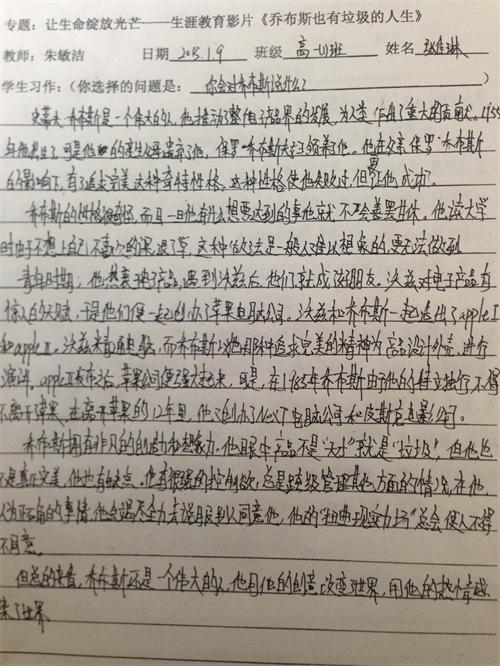 专题：让生命绽放光芒——生涯教育影片《乔布斯也有垃圾的人生》
教师：朱敏洁 日期 2015.1.9 班级 高一(1)班 姓名
学生习作：（你选择的问题是： 你会对乔布斯说什么？
史蒂夫·乔布斯是一个伟大的人，他推动了整个电子产品界的发展，为人类作出了重大的贡献。1955
年他出生了，可是他的亲生父母遗弃了他，保罗·乔布斯夫妇领养了他。他在父亲保罗·乔布斯
的影响下，有了追求完美这种奇特性格，这种性格使他失败过，但也让他成功。
乔布斯的性格很奇怪，而且一旦他有什么想要达到的事他就不会善罢甘休。他读大学
时由于不想上自己不喜欢的课，退了学，这种做法是一般人难以想象的，更无法做到
青年时期，他热衷电子产品，遇到沃兹后，他们就成了好朋友。沃兹对电子产品有
惊人的天赋，于是他们便一起创办了苹果电脑公司。沃兹和乔布斯一起造出了apple I
和apple II，沃兹来制造电脑，而乔布斯以他那种追求完美的精神为产品设计外壳，进行
演讲，apple II发布后，苹果公司便强大起来，可是，在1985年乔布斯由于他的特立独行不得
不离开苹果，在离开苹果的12年里，他创办了NeXT电脑公司和皮斯克电影公司。
乔布斯拥有非凡的创造力和想象力，他眼中产品不是“天才”就是“垃圾”，但他也
不是真正完美，他也有缺点，他有很强的控制欲，总是越级管理其他方面的情况，在他
认为正确的事情，他会竭尽全力去说服别人同意他，他的“扭曲现实力场”总会使人不得
不同意。
但总的来看，乔布斯还是一个伟大的人，他用他的创意改变了世界，用他的热情
来了世界